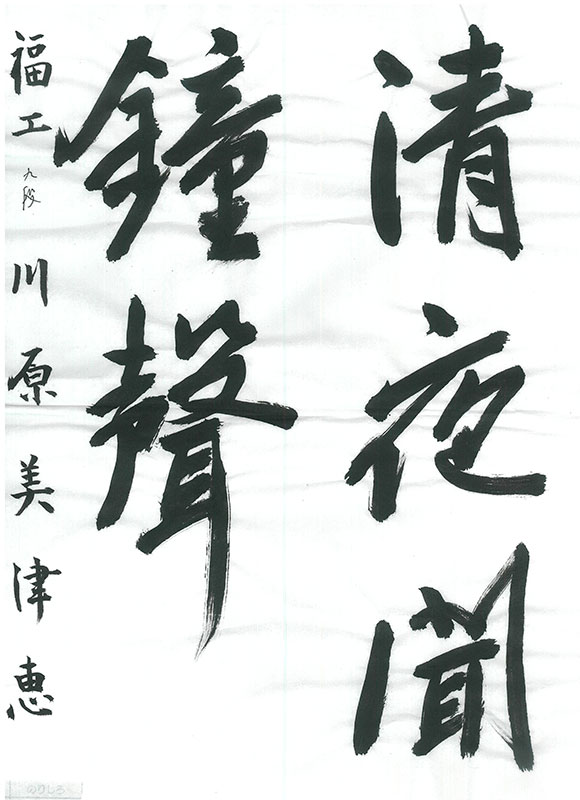 清夜聞
鐘聲
福工 九段 川原美津恵
のりしろ